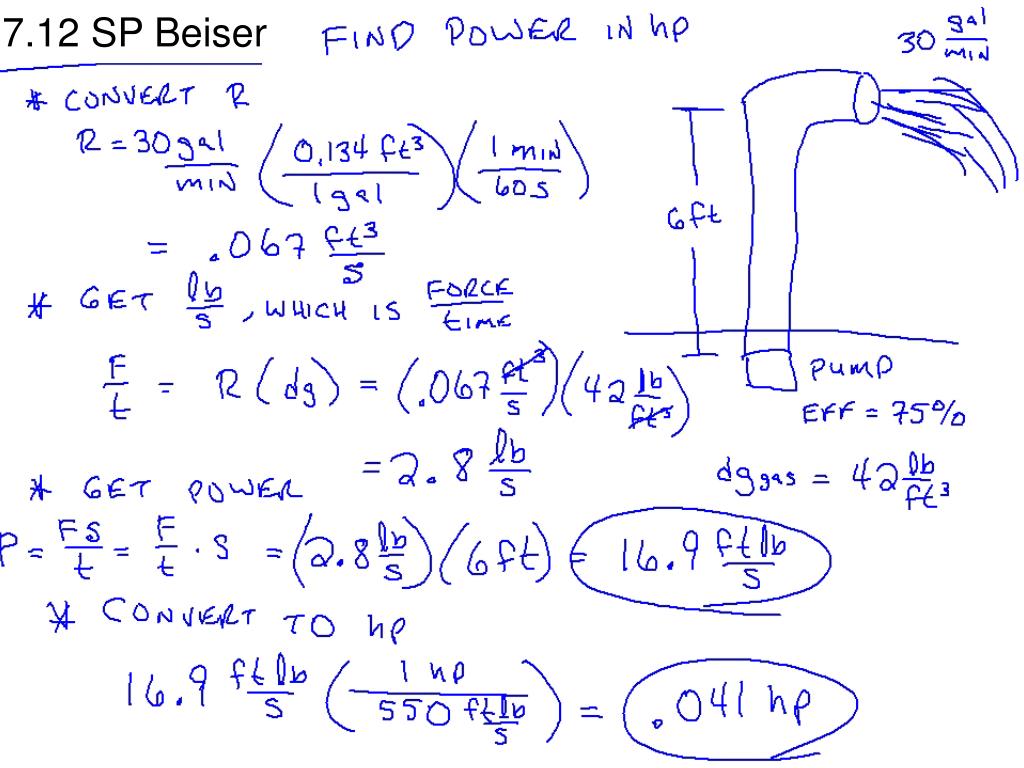 7.12 SP Beiser FIND POWER IN hp
30 gal/min
* CONVERT R
R = 30 gal/min (0.134 ft³/1 gal)(1 min/60 s)
= .067 ft³/s
6ft
* GET lb/s, WHICH IS FORCE/time
F/t = R (dg) = (.067 ft³/s)(42 lb/ft³)
PUMP
EFF = 75%
= 2.8 lb/s
dg gas = 42 lb/ft³
* GET POWER
P = FS/t = F/t · S = (2.8 lb/s)(6ft) = 16.9 ft lb/s
* CONVERT TO hp
16.9 ft lb/s (1 hp/550 ft lb/s) = .041 hp